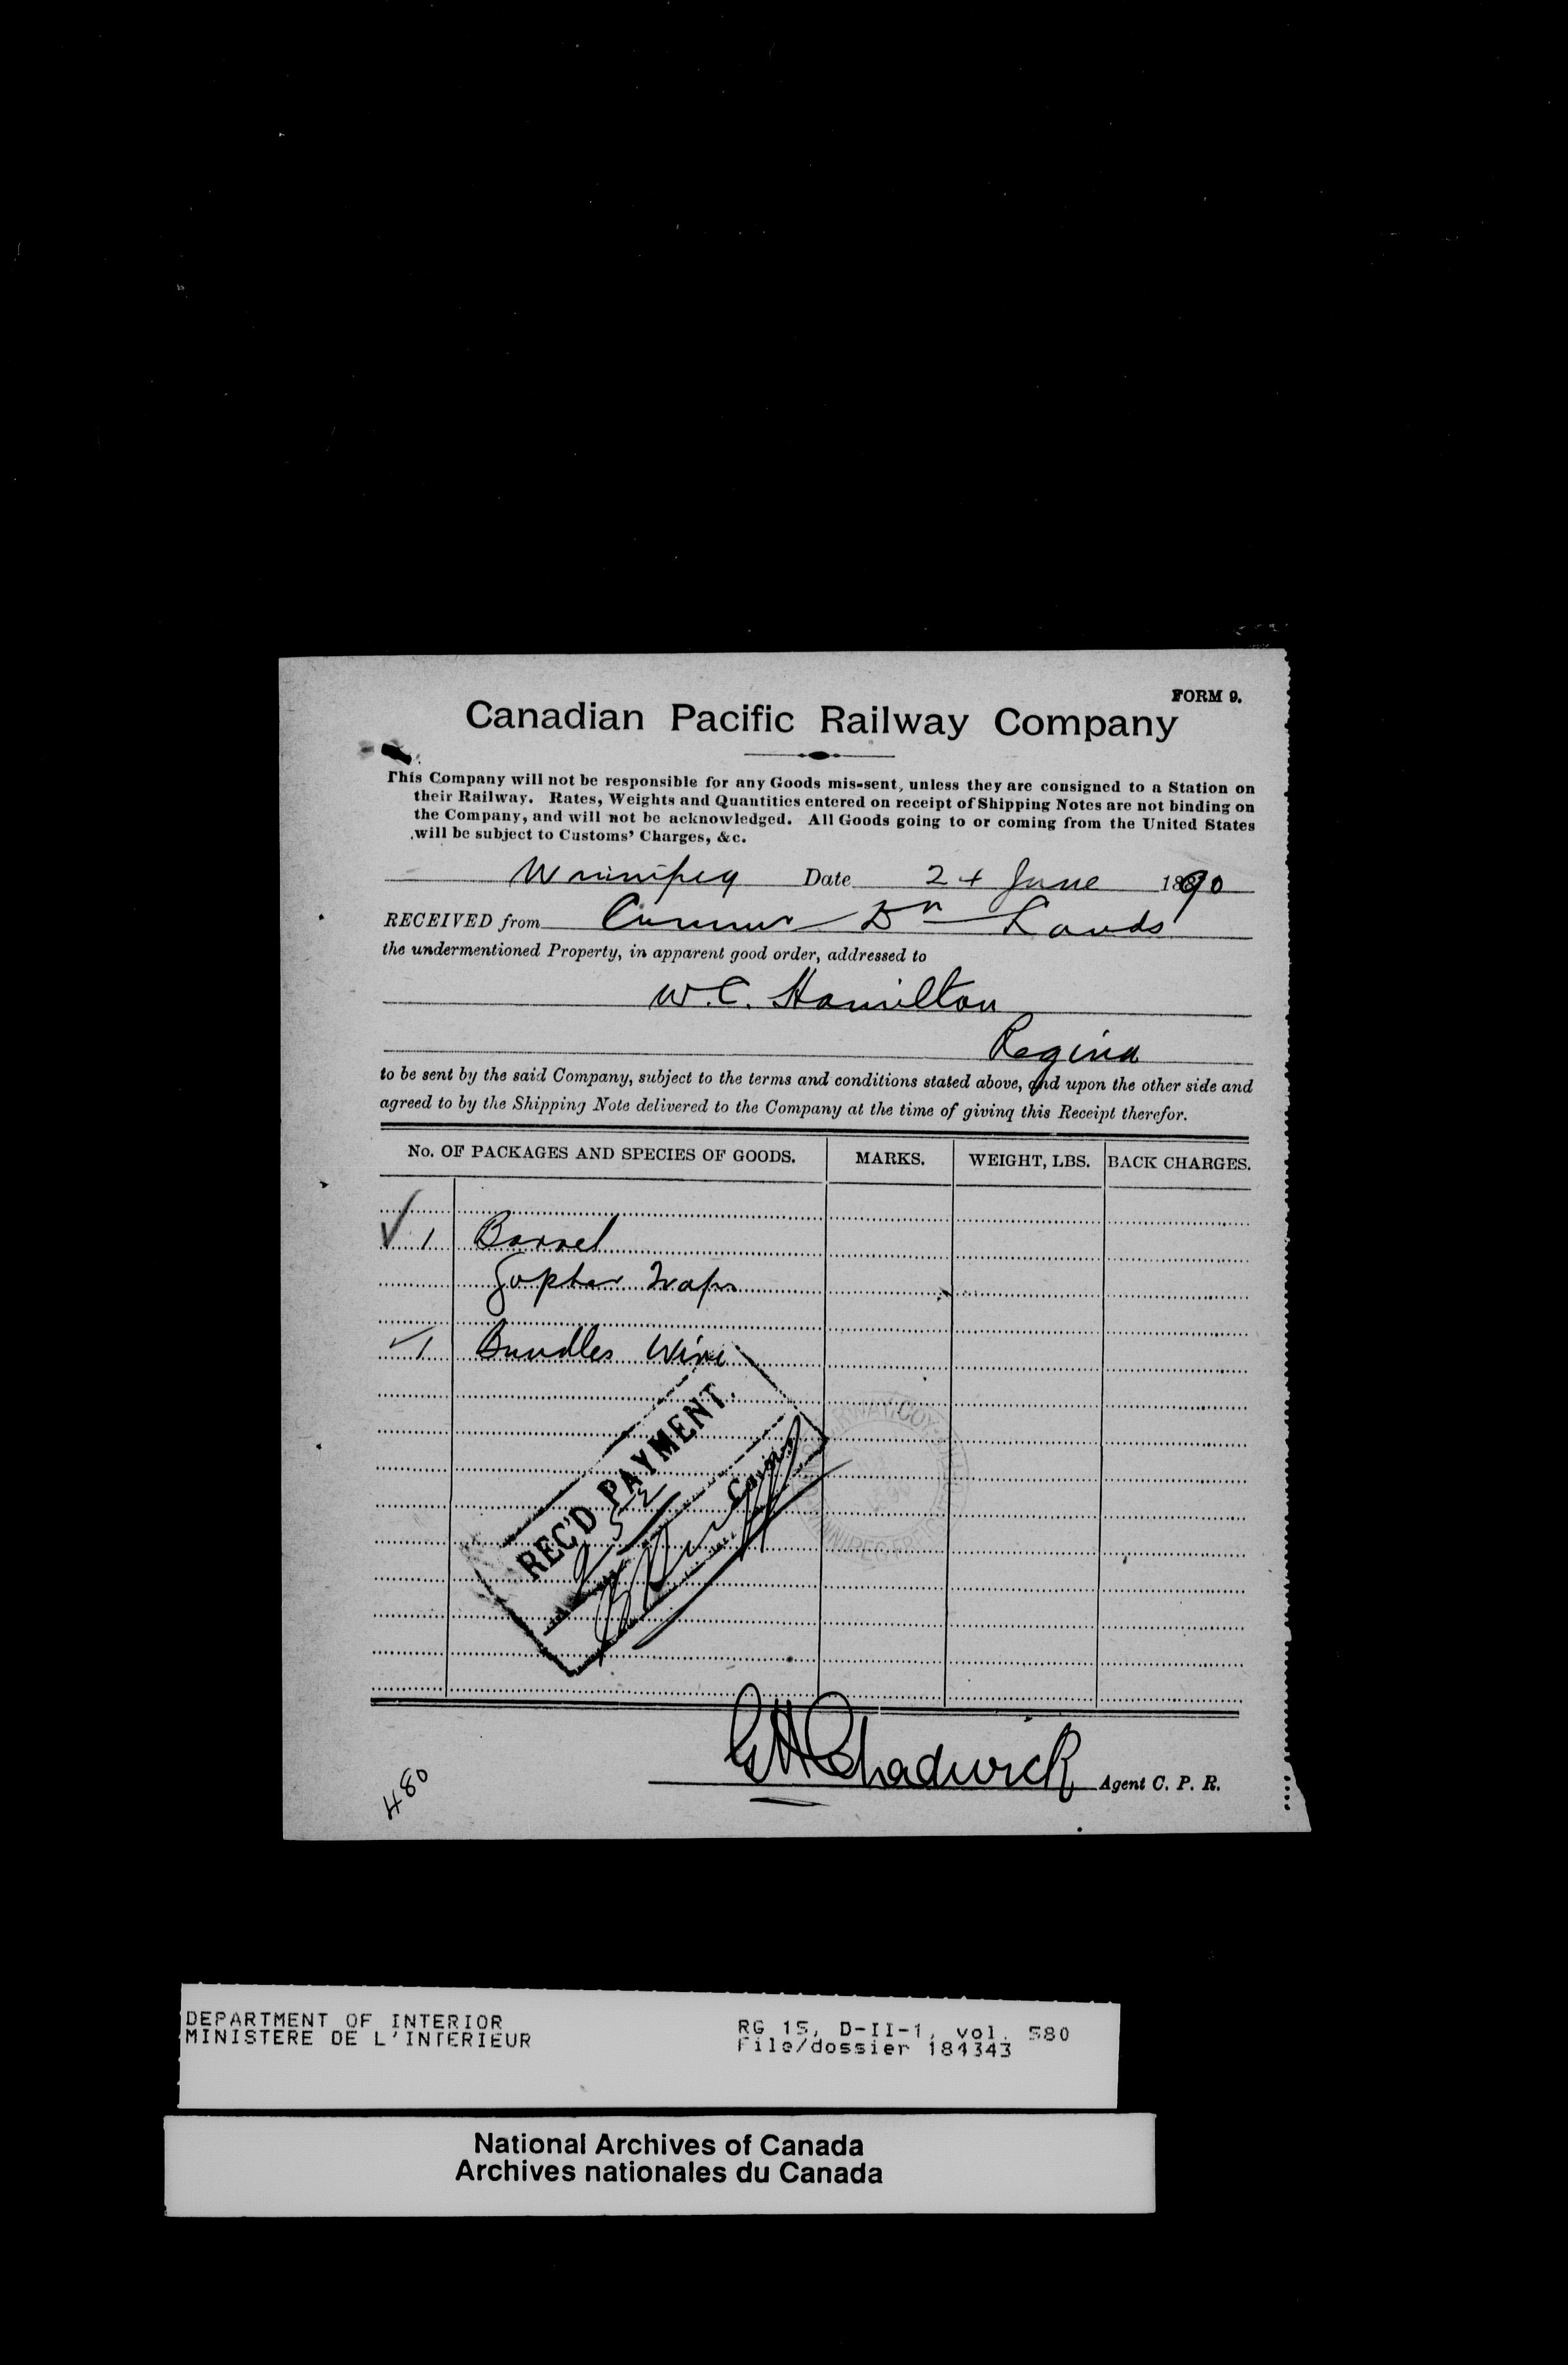 FORM 9.
Canadian Pacific Railway Company
This Company will not be responsible for any Goods mis-sent, unless they are consigned to a Station on
their Railway. Rates, Weights and Quantities entered on receipt of Shipping Notes are not binding on
the Company, and will not be acknowledged. All Goods going to or coming from the United States
will be subject to Customs' Charges, &c.
Winnipeg Date 24 June 1890
RECEIVED from Dn Lands
the undermentioned Property, in apparent good order, addressed to
W. C. Hamilton
Regina
to be sent by the said Company, subject to the terms and conditions stated above, and upon the other side and
agreed to by the Shipping Note delivered to the Company at the time of giving this Receipt therefor.
No. OF PACKAGES AND SPECIES OF GOODS. MARKS. WEIGHT, LBS. BACK CHARGES.
1 Barrel
Gopher Traps
1 Bundles Wire
REC'D PAYMENT.
GHChadwick Agent C. P. R.
480
DEPARTMENT OF INTERIOR
MINISTERE DE L'INTERIEUR
RG 15, D-II-1, vol. 580
File/dossier 184343
National Archives of Canada
Archives nationales du Canada